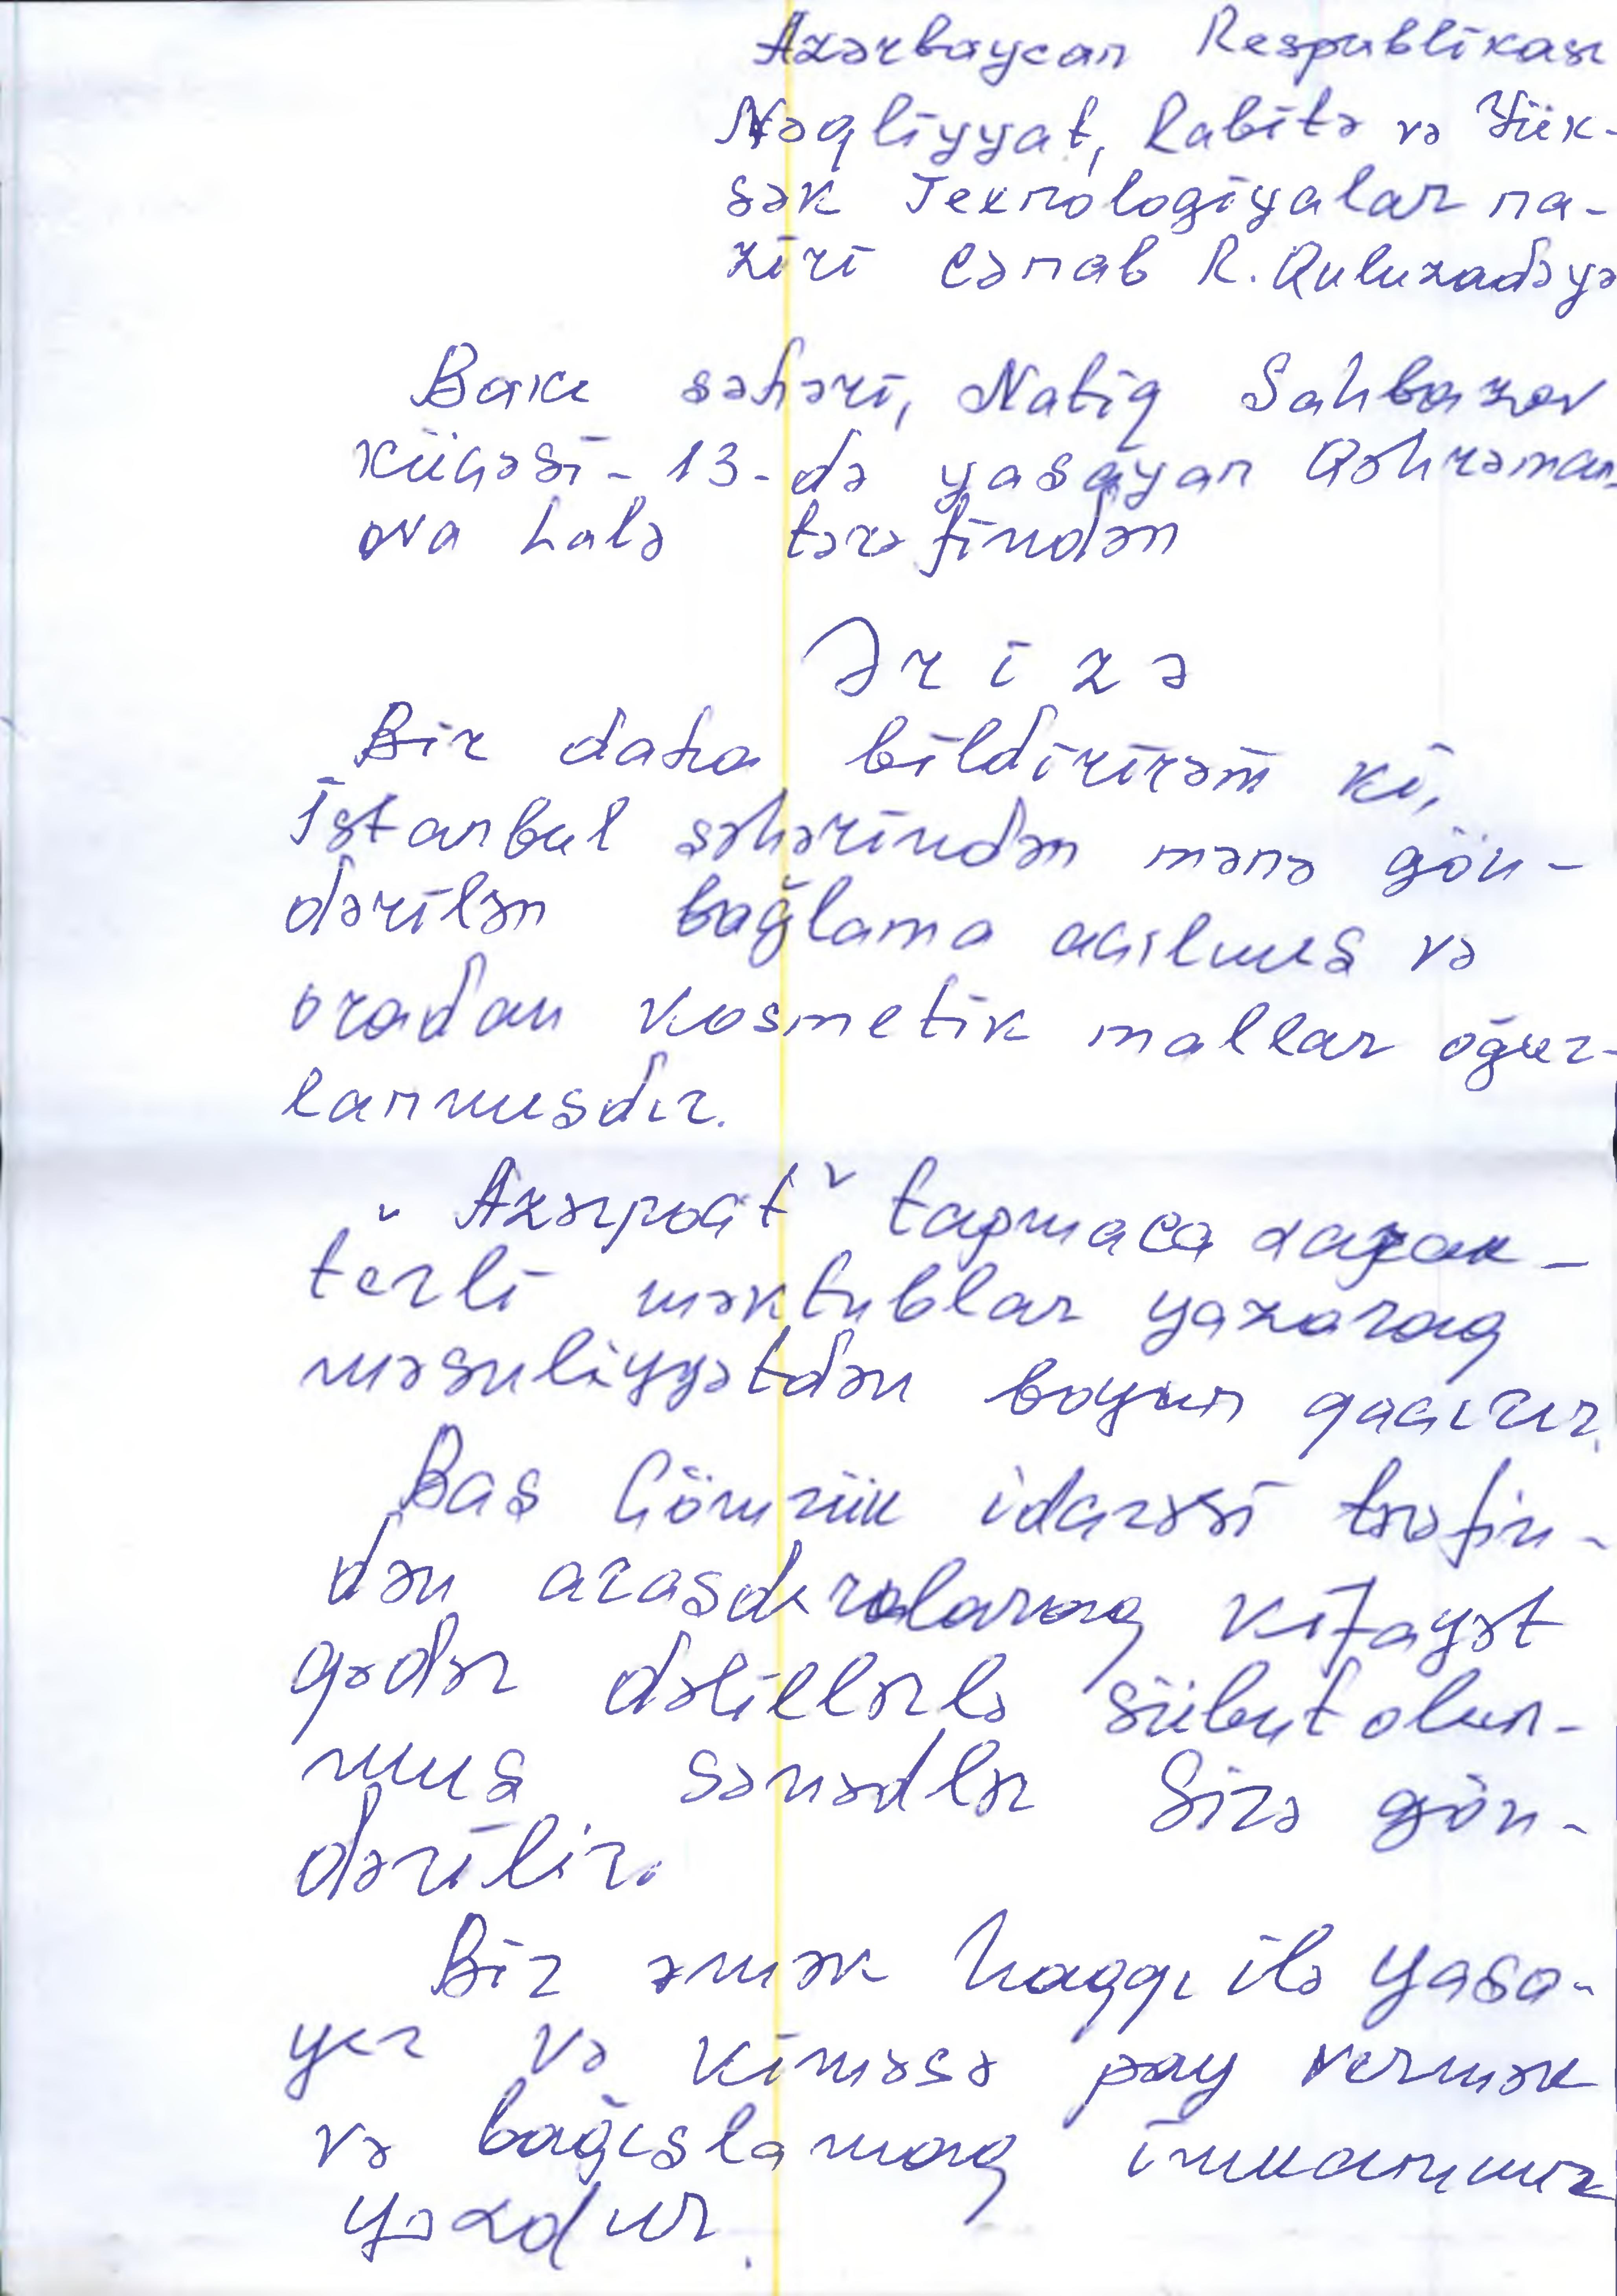 Azərbaycan Respublikası
Nəqliyyat, Rabitə və Yük-
sək Texnologiyalar na-
ziri cənab R. Quluzadəyə
Bakı şəhəri, Natiq Şahbazov
küçəsi - 13-də yaşayan Qəhrəman
ova Lalə tərəfindən
Ərizə
Bir daha bildirirəm ki,
İstanbul şəhərindən mənə gön-
dərilən bağlama açılmış və
oradan kosmetik mallar oğur-
lanmışdır.
"Azərpoçt" tapmaca xarak-
terli məktublar yazaraq
məsuliyyətdən boyun qaçırır.
Baş Gömrük idarəsi tərəfin-
dən araşdırılaraq kifayət
qədər dəlillərlə sübut olun-
muş sənədlər Sizə gön-
dərilir.
Biz əmək haqqı ilə yaşa-
yır və kiməsə pay vermək
və bağışlamaq imkanımız
yoxdur.